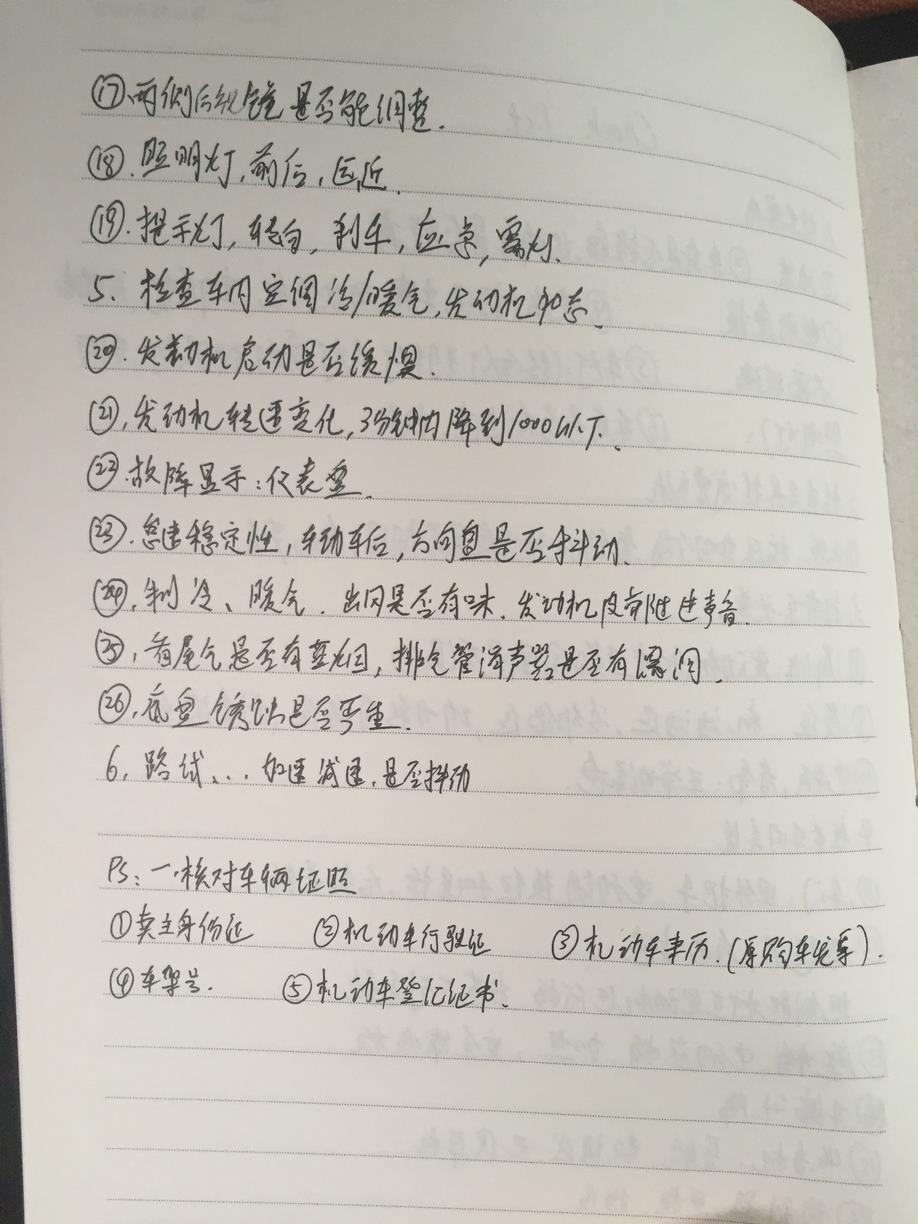 ⑰、两侧后视镜是否能调整.
⑱.照明灯,前后,远近.
⑲.提示灯,转向,刹车,应急,雾灯.
5、检查车内空调冷/暖气,发动机状态.
⑳.发动机启动是否缓慢.
㉑,发动机转速变化,3分钟内降到1000以下.
㉒.故障显示:仪表盘.
㉓.怠速稳定性,车动车后,方向盘是否抖动.
㉔,制冷、暖气.出风是否有味.发动机皮带附近声音.
㉕,看尾气是否有蓝烟,排气管消声器是否有漏洞.
㉖,底盘锈蚀是否严重.
6,路试...加速减速.是否抖动
PS:一.核对车辆证照
①卖主身份证 ②机动车行驶证 ③机动车来历.(原购车发票).
④车架号. ⑤机动车登记证书.